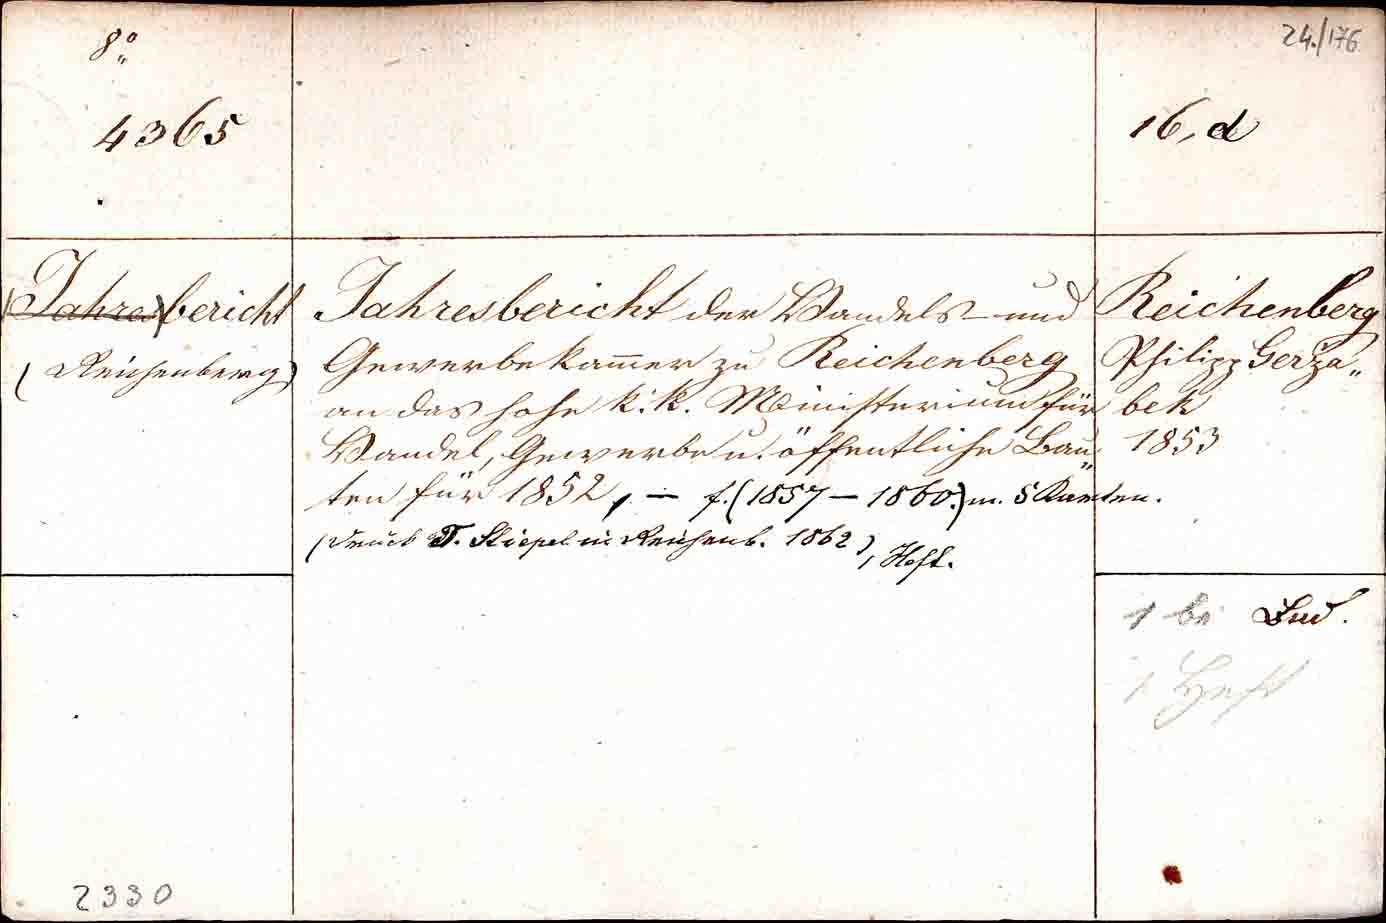 8°
24./176
4365
16, d
(Jahres)bericht
(Reichenberg)
Jahresbericht der Handels- und
Gewerbekam̄er zu Reichenberg
an das hohe k. k. Ministerium für
Handel, Gewerbe u. öffentliche Bau„
ten für 1852, — f. (1857 — 1860.) m. 5 Karten.
(Druck T. Stiepel in Reichenb. 1862), Heft.
Reichenberg
Philipp Gerza„
bek
1853
1 br Bnd.
1 Heft
2330